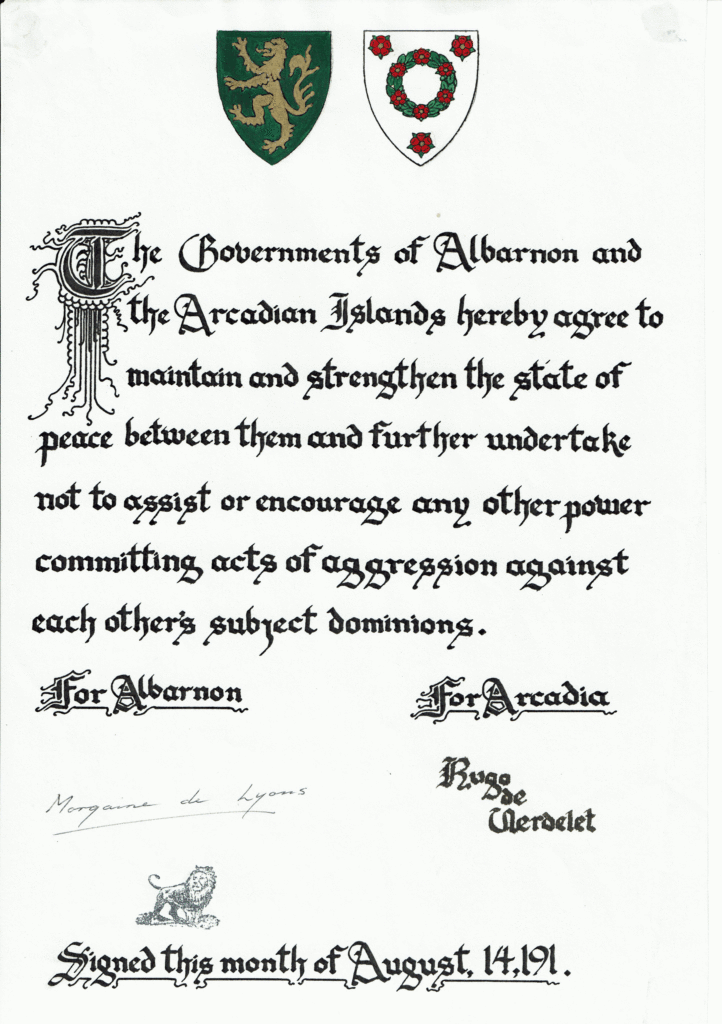 The Governments of Albarnon and
the Arcadian Islands hereby agree to
maintain and strengthen the state of
peace between them and further undertake
not to assist or encourage any other power
committing acts of aggression against
each other's subject dominions.
For Albarnon
For Arcadia
Morgaine de Lyons
Hugo
de
Verdelet
Signed this month of August, 14,191.